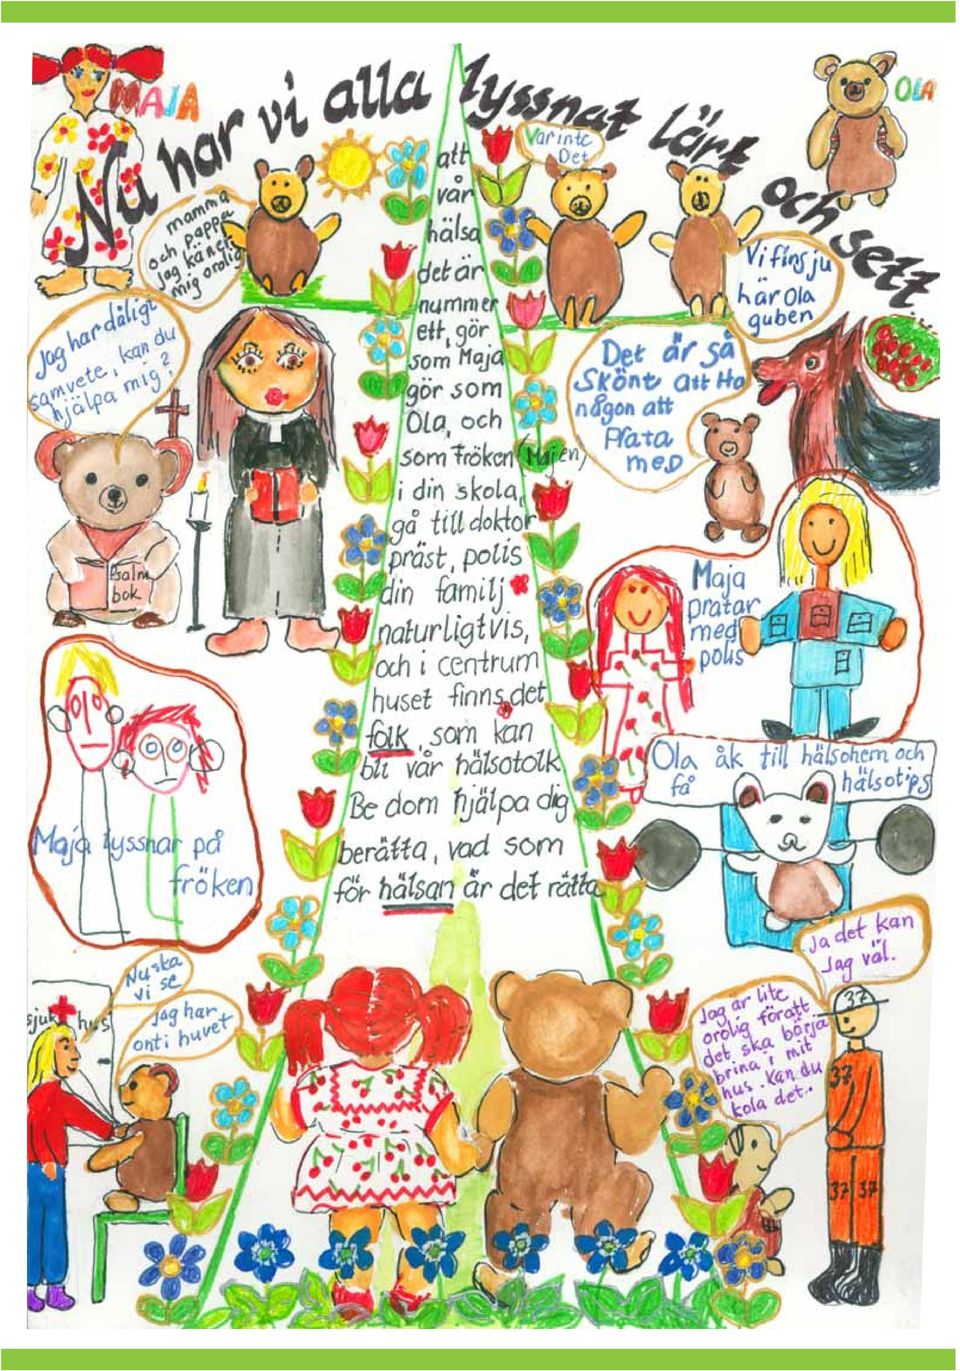 MAJA
OLA
Nu har vi alla lyssnat lärt och sett
att
vår
hälsa
det är
nummer
ett, gör
som Maja
gör som
Ola, och
som fröken (Majen)
i din skola,
gå till doktor
präst, polis
din familj
naturligtvis,
och i centrum
huset finns det
folk, som kan
bli vår hälsotolk
Be dom hjälpa dig
berätta, vad som
för hälsan är det rätta
mamma
och pappa
jag känen
mig orolig
Var inte
Det
Vi fins ju
här Ola
guben
Jag har dåligt
samvete, kan du
hjälpa mig?
Psalm
bok
Det är så
Skönt att Ha
någon att
Prata
med
Maja
pratar
med
polis
Maja lyssnar på
fröken
Ola åk till hälsohem och
få hälsotips
Nu ska
vi se
Jag har
ont i huvet
sjuk hus
Ja det kan
Jag väl.
Jag är lite
orolig föratt
det ska börja
brina i mit
hus. Kan du
kola det..
37
37
37 37